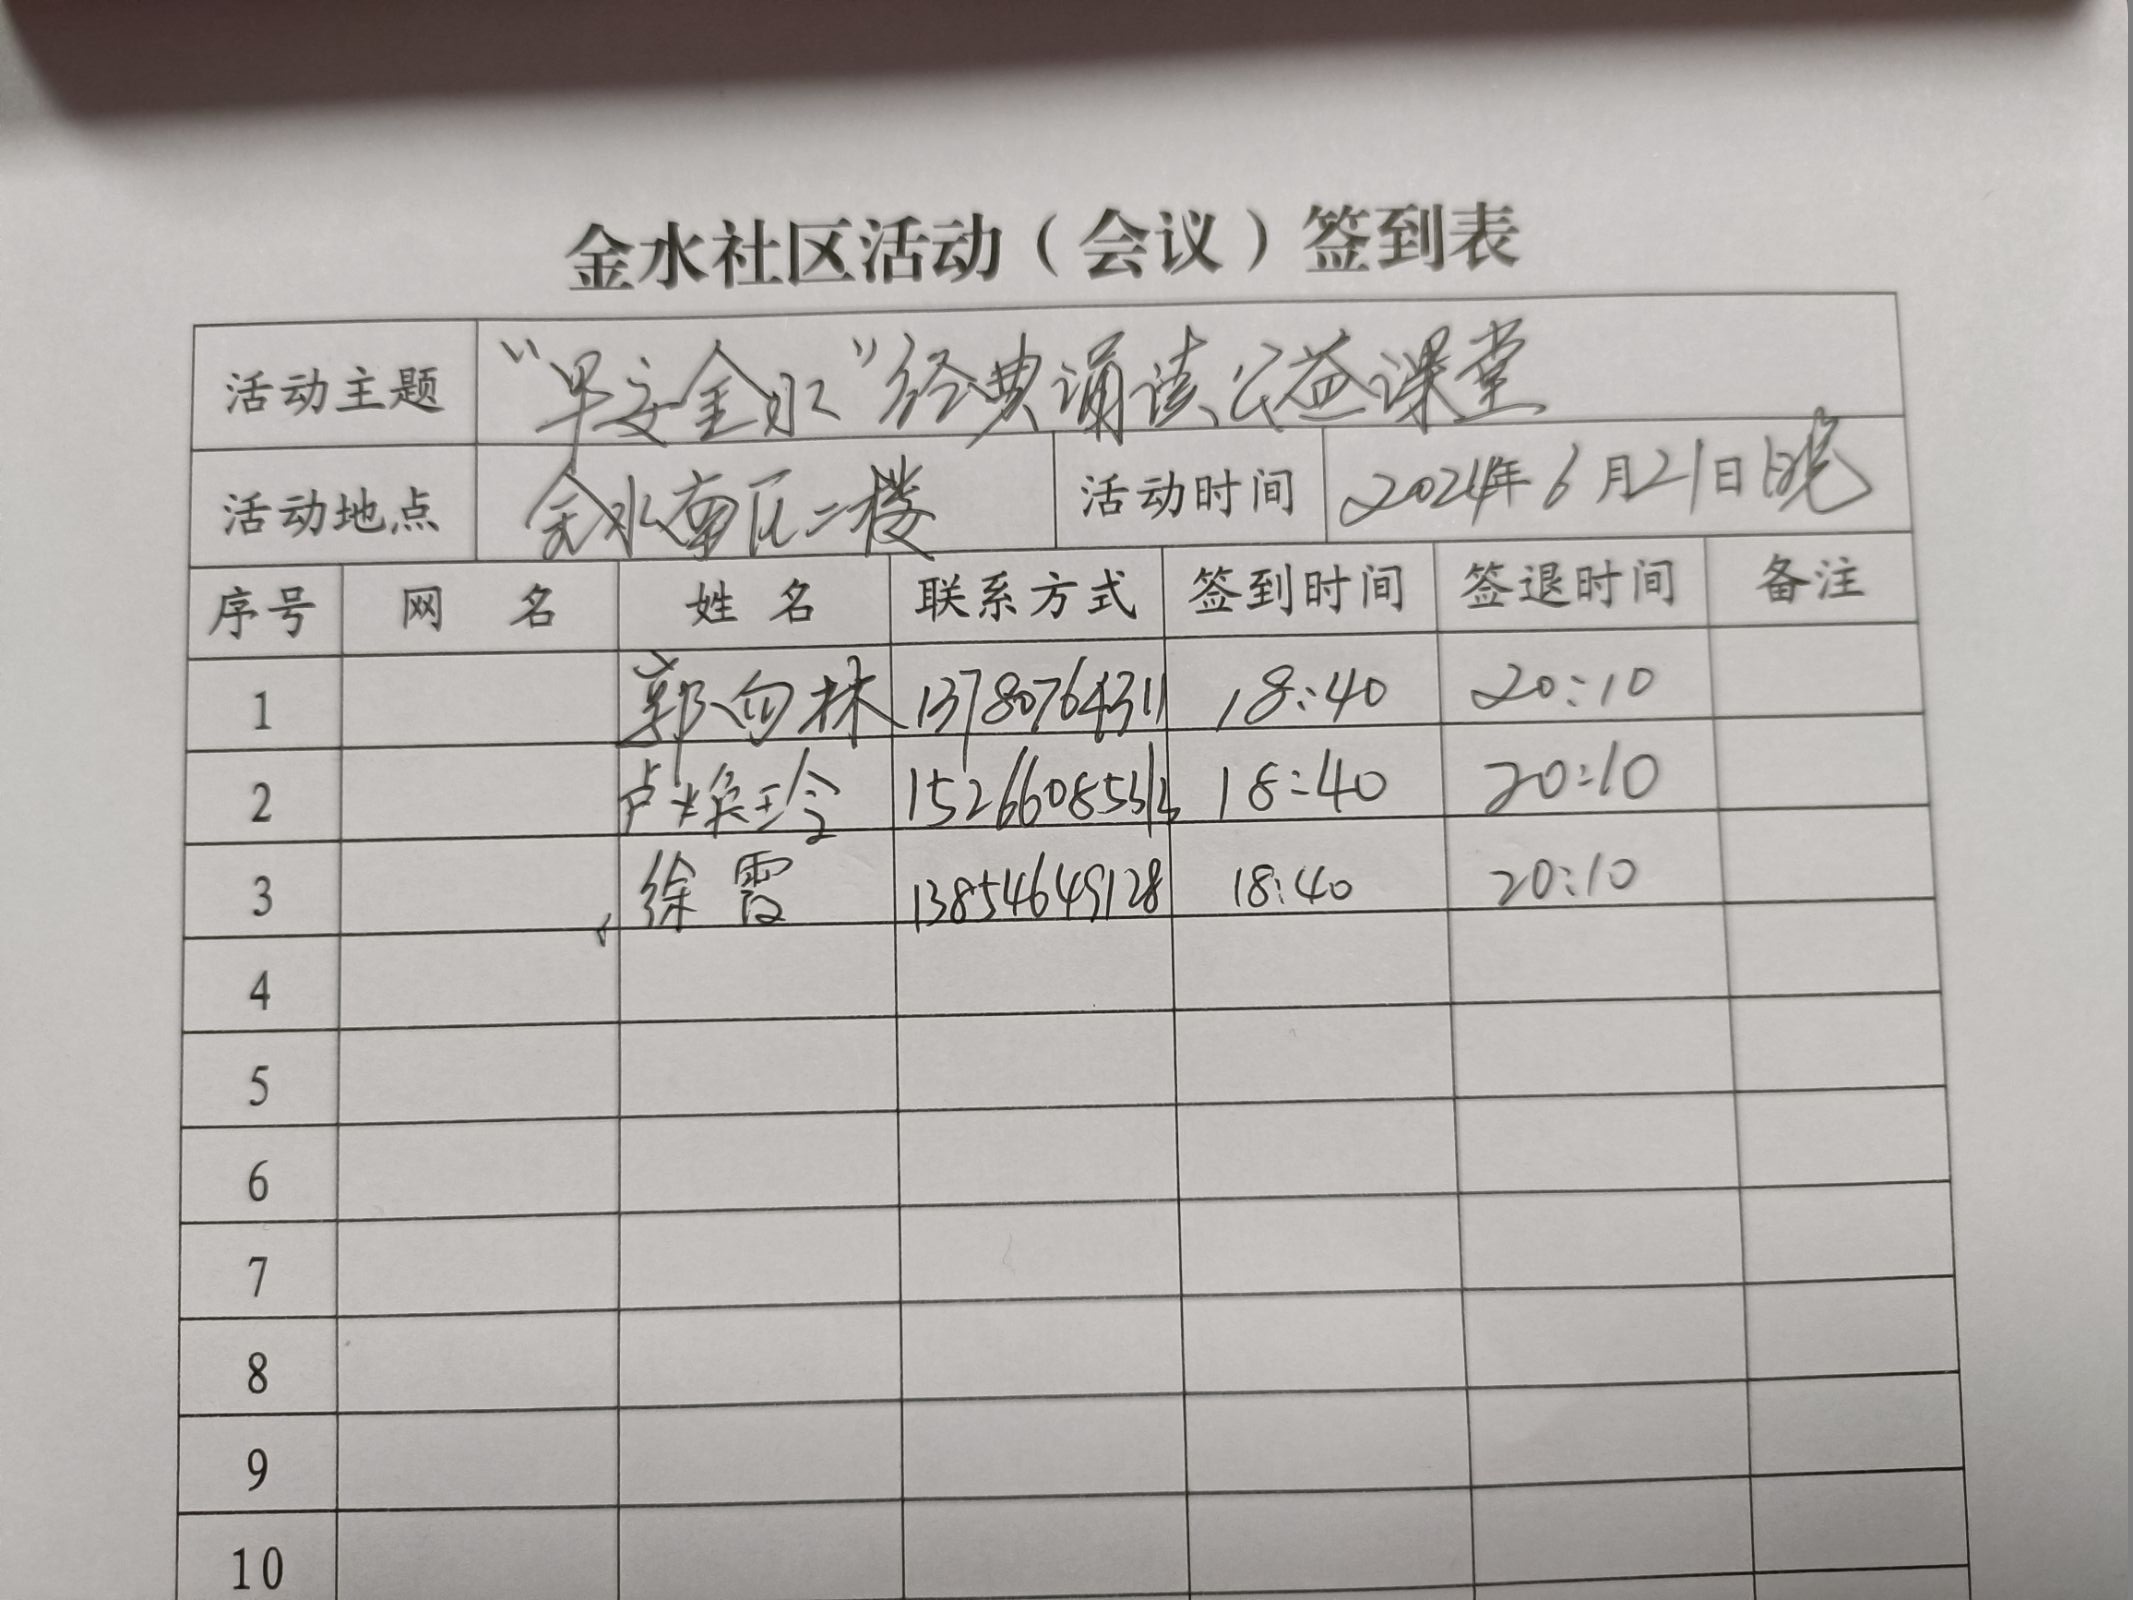 金水社区活动（会议）签到表
活动主题 “早安金水”经典诵读公益课堂
活动地点 金水南区二楼 活动时间 2024年6月21日晚
序号 网 名 姓 名 联系方式 签到时间 签退时间 备注
1 郭向林 13780764311 18:40 20:10
2 卢焕玲 18:40 20:10
3 徐霞 13854649128 18:40 20:10
4
5
6
7
8
9
10